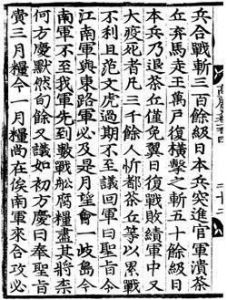 兵合戰斬三百餘級日本兵突進官軍潰茶
丘弃馬走王萬戶復橫擊之斬五十餘級日
本兵乃退茶丘僅免翼日復戰敗績軍中又
大疫死者凡三千餘人忻都茶丘等以累戰
不利且范文虎過期不至議回軍曰聖旨令
江南軍與東路軍必及是月望會一岐島今
南軍不至我軍先到數戰舩腐糧盡其將柰
何方慶默然旬餘又議如初方慶曰奉聖旨
賫三月糧今一月糧尚在俟南軍來合攻必